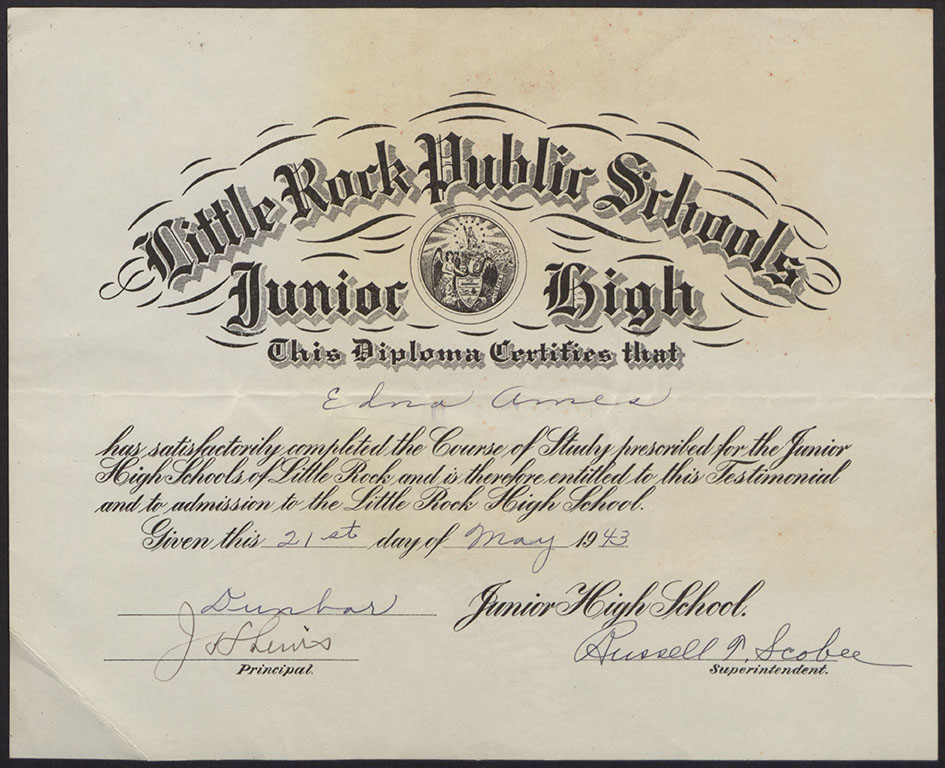 Little Rock Public Schools
Junior High
This Diploma Certifies that
Edna Ames
has satisfactorily completed the Course of Study prescribed for the Junior
High Schools of Little Rock and is therefore entitled to this Testimonial
and to admission to the Little Rock High School.
Given this 21st day of May 1943
Dunbar Junior High School.
J H Lewis
Principal.
Russell T. Scobee
Superintendent.